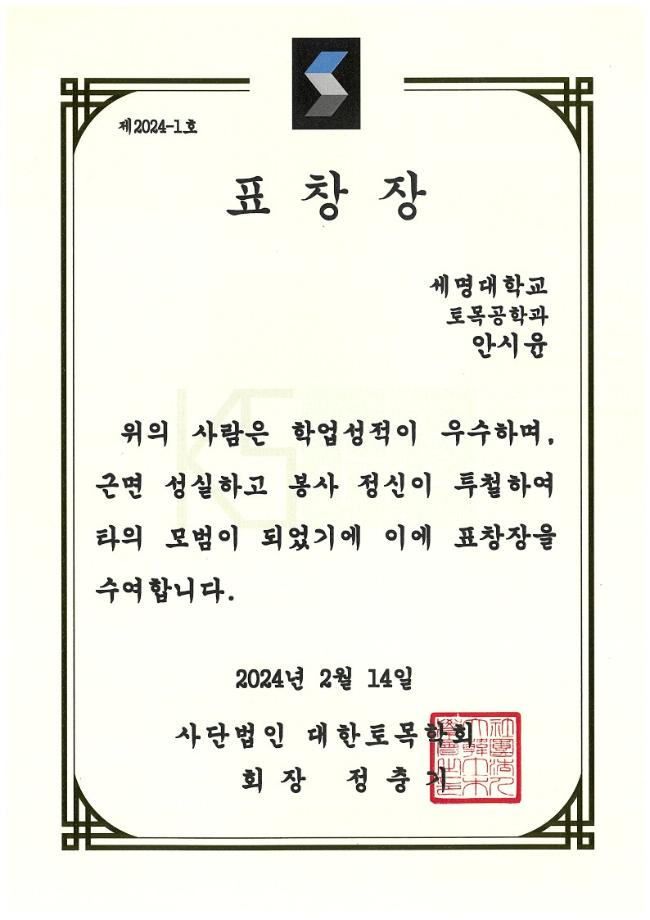 제2024-1호
표 창 장
세명대학교
토목공학과
안시윤
위의 사람은 학업성적이 우수하며,
근면 성실하고 봉사 정신이 투철하여
타의 모범이 되었기에 이에 표창장을
수여합니다.
2024년 2월 14일
사단법인 대한토목학회
회 장 정 충 기